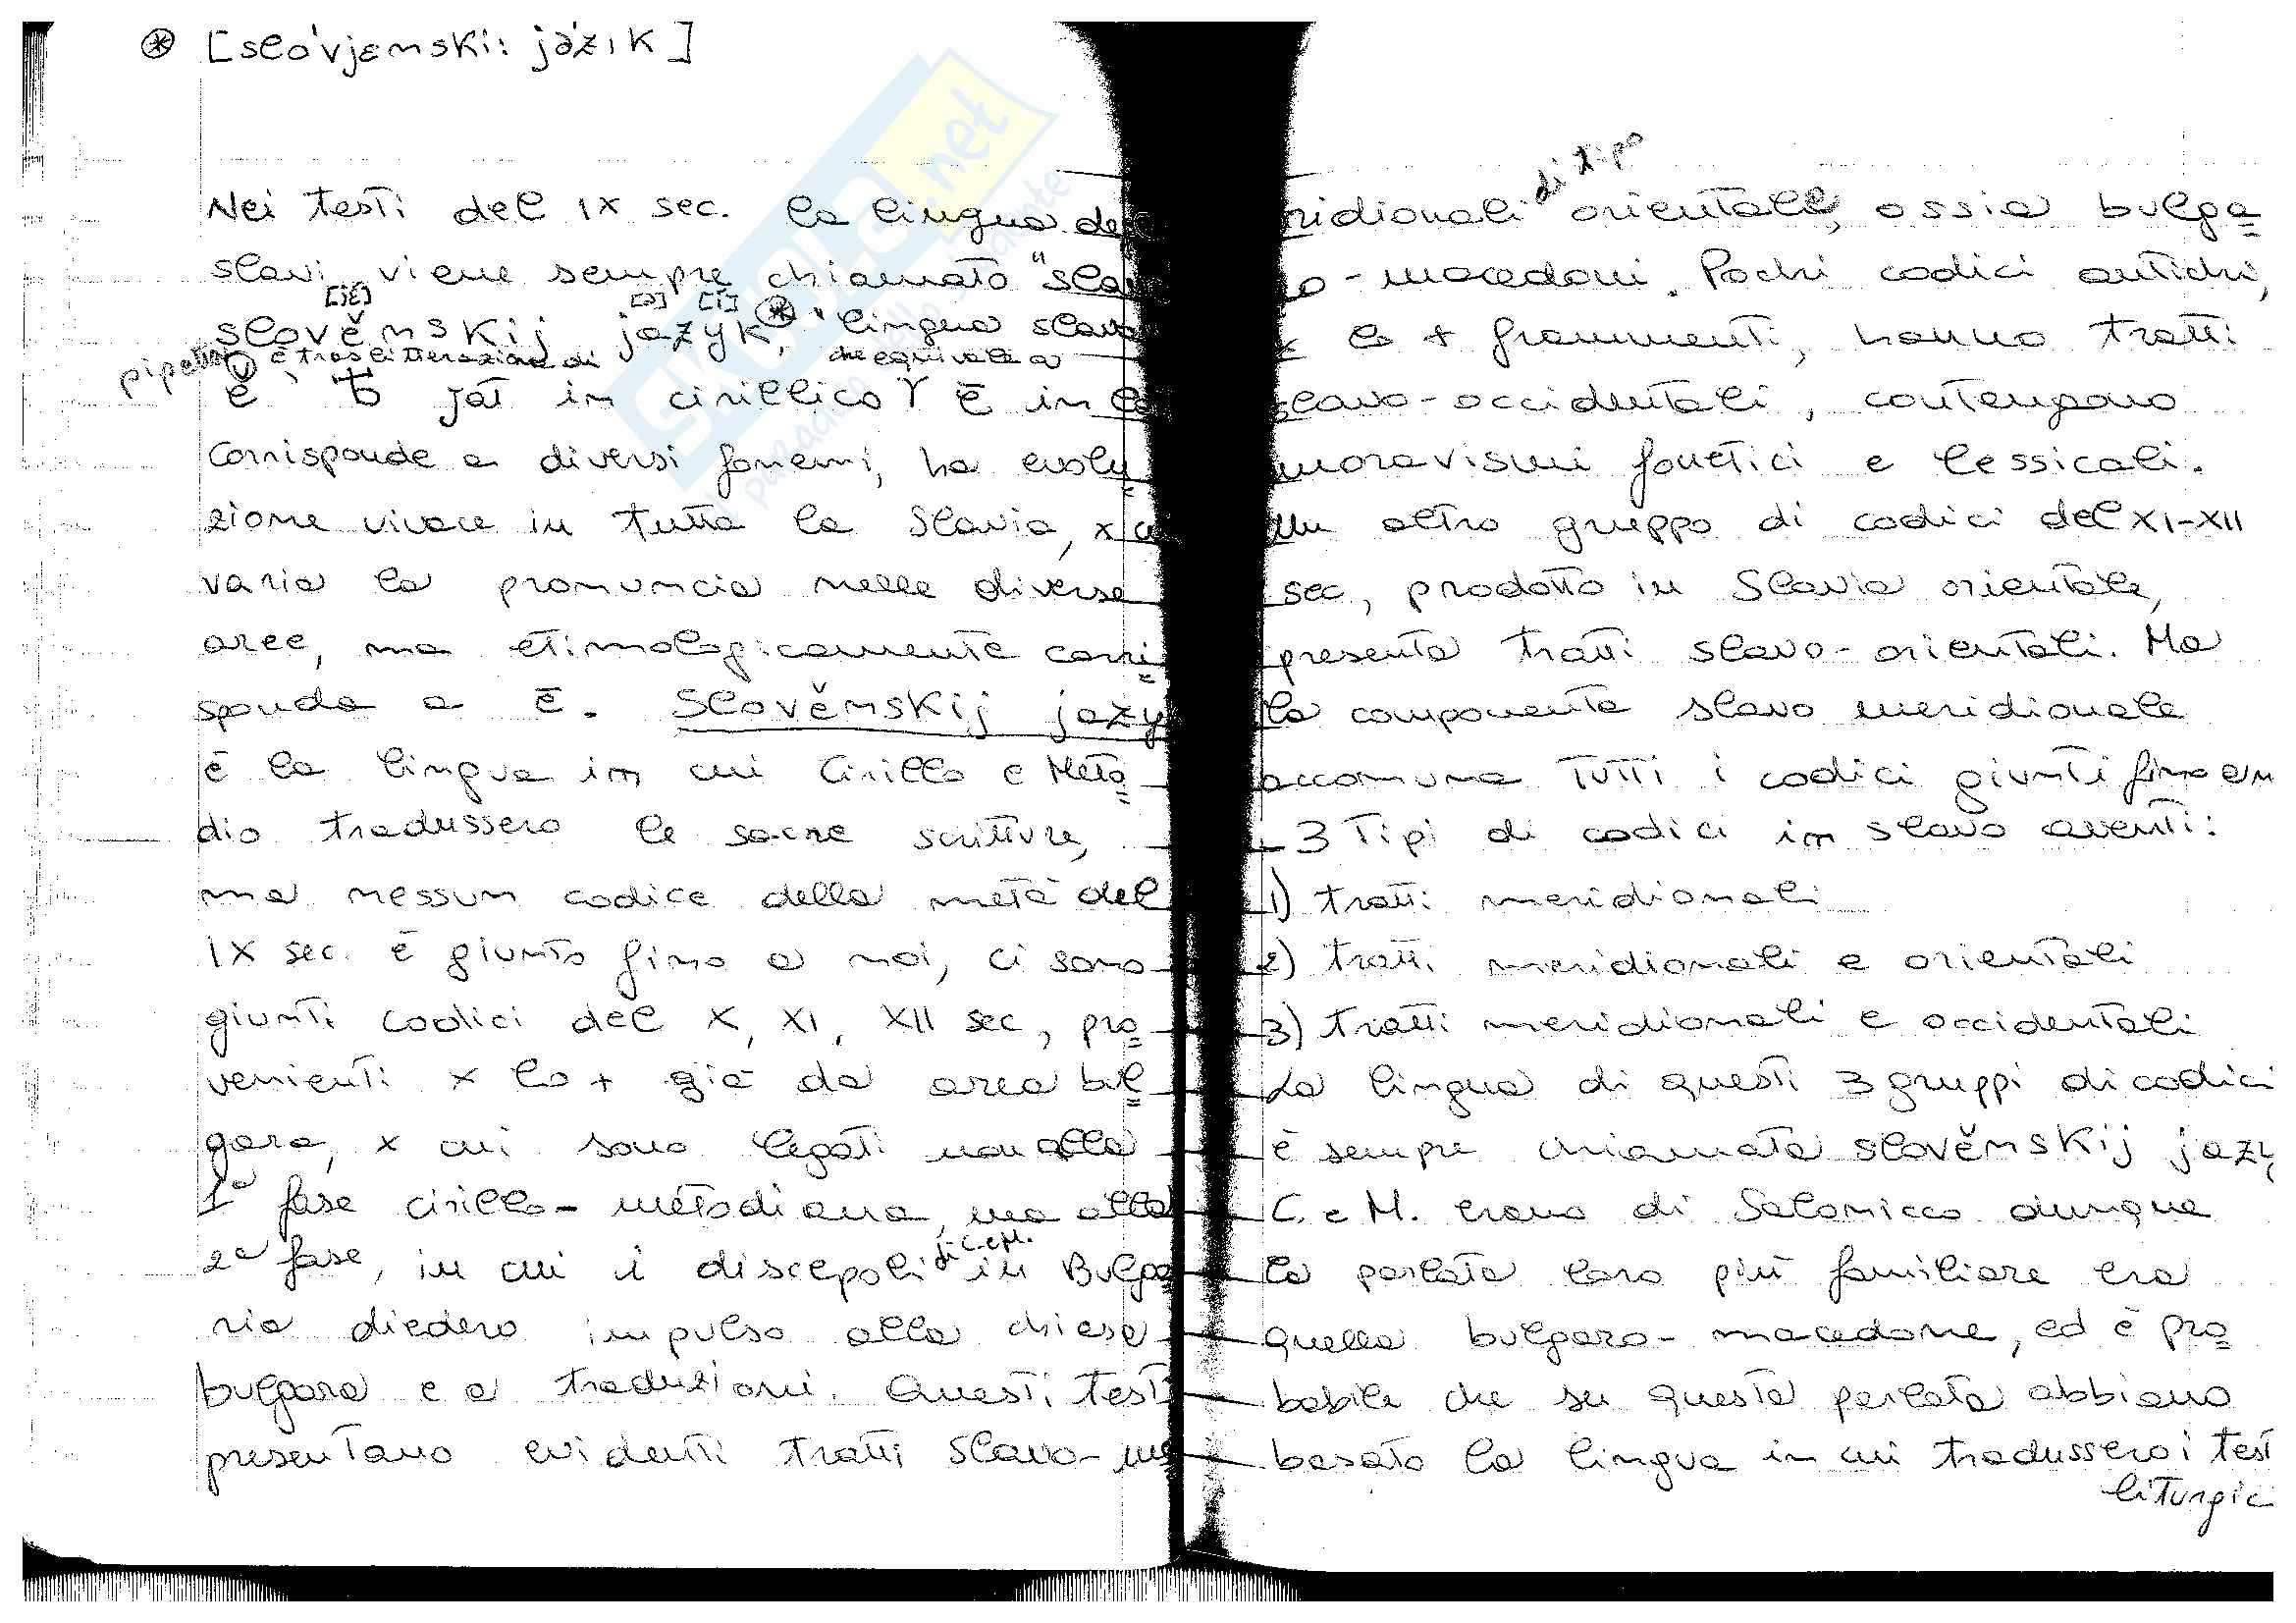 ⊛ [slo'vjenski: jàzık]
Nei testi del IX sec. la lingua de
slavi viene sempre chiamata "slav
[jɛ] [ə] [i]
slověnskij jazyk⊛", lingua slava
pipetta è traslitterazione di che equivale a
ě, ѣ jat in cirillico ē in
corrisponde a diversi fonemi, ha evolu
zione vivace in tutta la Slavia, x cu
varia la pronuncia nelle diverse
aree, ma etimologicamente corri
sponde a ē. Slověnskij jazy
è la lingua in cui Cirillo e Meto
dio tradussero le sacre scritture,
ma nessun codice della metà del
IX sec. è giunto fino a noi, ci sono
giunti codici del X, XI, XII sec, pro
venienti x lo + già da area bul
gara, x cui sono legati non alla
1ª fase cirillo-metodiana, ma alla
2ª fase, in cui i discepoli di C. e M. in Bulga
ria diedero impulso alla chiesa
bulgara e a traduzioni. Questi testi
presentano evidenti tratti slavo-me
ridionali di tipo orientale, ossia bulga
ro-macedoni. Pochi codici antichi,
x lo + frammenti, hanno tratti
slavo-occidentali, contengono
moravismi fonetici e lessicali.
Un altro gruppo di codici del XI-XII
sec, prodotto in Slavia orientale,
presenta tratti slavo-orientali. Ma
la componente slavo meridionale
accomuna tutti i codici giunti fino a n
3 Tipi di codici in slavo aventi:
1) tratti meridionali
2) tratti meridionali e orientali
3) tratti meridionali e occidentali
La lingua di questi 3 gruppi di codici
è sempre chiamata slověnskij jazy
C. e M. erano di Salonicco dunque
la parlata loro più familiare era
quella bulgaro-macedone, ed è pro
babile che su questa parlata abbiano
basato la lingua in cui tradussero i test
liturgic